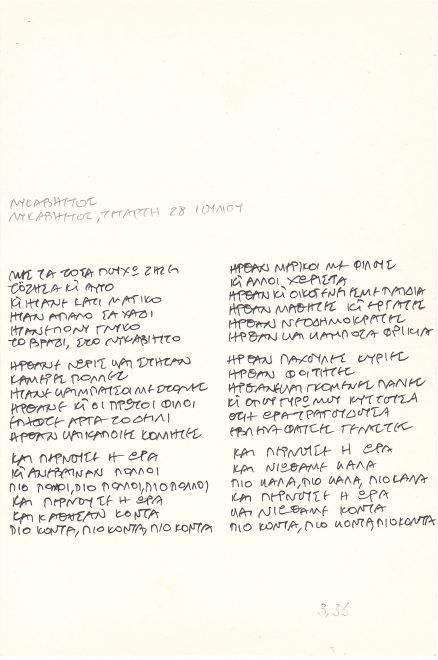 ΛΥΚΑΒΗΤΤΟΣ
ΛΥΚΑΒΗΤΤΟΣ, ΤΕΤΑΡΤΗ 28 ΙΟΥΛΙΟΥ
ΜΕΣ ΤΑ ΤΟΣΑ ΠΟΥΧΩ ΖΗΣΕΙ
ΤΟΖΗΣΑ ΚΙ ΑΥΤΟ
ΚΙ ΗΤΑΝΕ ΚΑΤΙ ΜΑΓΙΚΟ
ΗΤΑΝ ΑΠΑΛΟ ΣΑ ΧΑΔΙ
ΗΤΑΝΕ ΠΟΛΥ ΓΛΥΚΟ
ΤΟ ΒΡΑΔΙ, ΣΤΟ ΛΥΚΑΒΗΤΤΟ
ΗΡΘΑΝΕ ΝΩΡΙΣ ΚΑΙ ΣΤΗΣΑΝ
ΚΑΜΕΡΕΣ ΠΟΛΛΕΣ
ΗΤΑΝΕ ΚΑΙ ΜΠΑΤΣΟΙ ΜΕ ΣΤΟΛΕΣ
ΗΡΘΑΝΕ ΚΙ ΟΙ ΠΡΩΤΟΙ ΦΙΛΟΙ
ΑΡΓΑ ΤΟ ΔΕΙΛΙ
ΗΡΘΑΝ ΚΑΙ ΚΑΠΟΙΕΣ ΚΟΜΗΤΕΣ
ΚΑΙ ΠΕΡΝΟΥΣΕ Η ΩΡΑ
ΚΙ ΑΝΕΒΑΙΝΑΝ ΠΟΛΛΟΙ
ΠΙΟ ΠΟΛΛΟΙ, ΠΙΟ ΠΟΛΛΟΙ, ΠΙΟ ΠΟΛΛΟΙ
ΚΑΙ ΠΕΡΝΟΥΣΕ Η ΩΡΑ
ΚΑΙ ΚΑΘΗΣΑΝ ΚΟΝΤΑ
ΠΙΟ ΚΟΝΤΑ, ΠΙΟ ΚΟΝΤΑ, ΠΙΟ ΚΟΝΤΑ
ΗΡΘΑΝ ΜΕΡΙΚΟΙ ΜΕ ΦΙΛΟΥΣ
ΚΙ ΑΛΛΟΙ ΧΩΡΙΣΤΑ
ΗΡΘΑΝ ΚΙ ΟΙΚΟΓΕΝΕΙΕΣ ΜΕ ΠΑΙΔΙΑ
ΗΡΘΑΝ ΜΑΘΗΤΕΣ ΚΙ ΕΡΓΑΤΕΣ
ΗΡΘΑΝ ΝΕΟΔΗΜΟΚΡΑΤΕΣ
ΗΡΘΑΝ ΚΑΙ ΚΑΜΠΟΣΑ ΦΡΙΚΙΑ
ΗΡΘΑΝ ΠΑΧΟΥΛΕΣ ΚΥΡΙΕΣ
ΗΡΘΑΝ ΦΟΙΤΗΤΕΣ
ΗΡΘΑΝΕ ΚΑΙ ΓΚΟΜΕΝΕΣ ΠΑΛΙΕΣ
ΚΙ ΟΠΟΥ ΓΥΡΩ ΜΟΥ ΚΥΤΤΟΥΣΑ
ΟΣΗ ΩΡΑ ΤΡΑΓΟΥΔΟΥΣΑ
ΕΒΛΕΠΑ ΦΑΤΣΕΣ ΓΕΛΑΣΤΕΣ
ΚΑΙ ΠΕΡΝΟΥΣΕ Η ΩΡΑ
ΚΑΙ ΝΙΩΘΑΜΕ ΚΑΛΑ
ΠΙΟ ΚΑΛΑ, ΠΙΟ ΚΑΛΑ, ΠΙΟ ΚΑΛΑ
ΚΑΙ ΠΕΡΝΟΥΣΕ Η ΩΡΑ
ΚΑΙ ΝΙΩΘΑΜΕ ΚΟΝΤΑ
ΠΙΟ ΚΟΝΤΑ, ΠΙΟ ΚΟΝΤΑ, ΠΙΟ ΚΟΝΤΑ
3,35